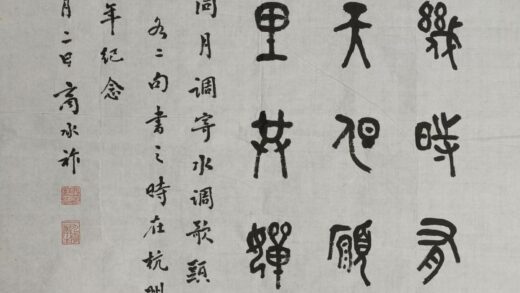 幾時有
天但願
里共嬋
月调寄水调歌頭
各二句書之時在杭
年纪念
月二日商承祚